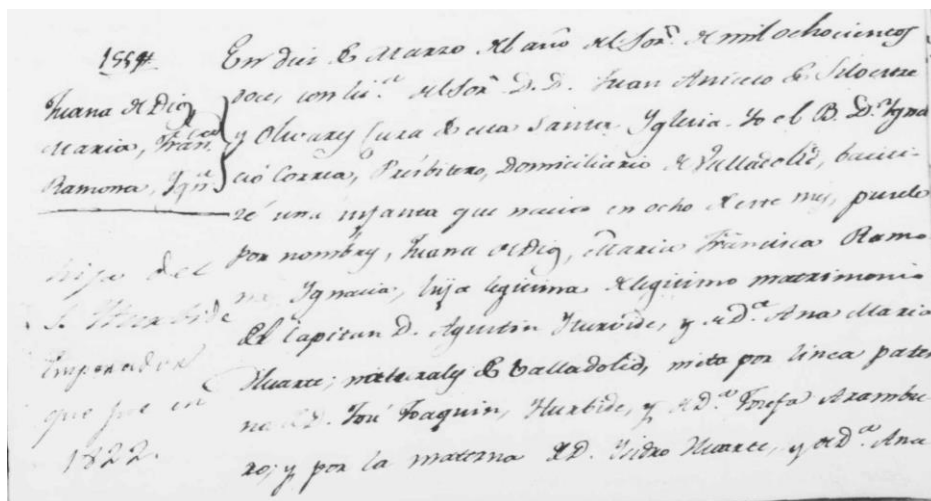 155#
Juana de Dios
Maria, Fran.ca
Ramona, Ygn.a
hija del
S. Yturbide
Emperador
que fue en
1822.
En dies de Marzo del año del Sor. de mil ochocientos
doce, con lic.a del Sor. D.D. Juan Aniceto de Silvestre
y Olivares Cura de esta Santa Yglesia. Yo el B. D.n Ygna
cio Correa, Présbitero, Domiciliario de Valladolid, bauti-
zé una infanta que nacio en ocho de este mes, pusele
por nombres, Juana de Dios, Maria Francisca Ramo-
na, Ygnacia, hija legitima de legitimo matrimonio
del Capitan D. Agustin Yturbide, y de D.a Ana Maria
Huarte; naturales de Valladolid, nieta por linea pater
na de D. José Joaquin, Yturbide, y de D.a Josefa Arambu
ro; y por la materna de D. Ysidro Huarte, y de D.a Ana